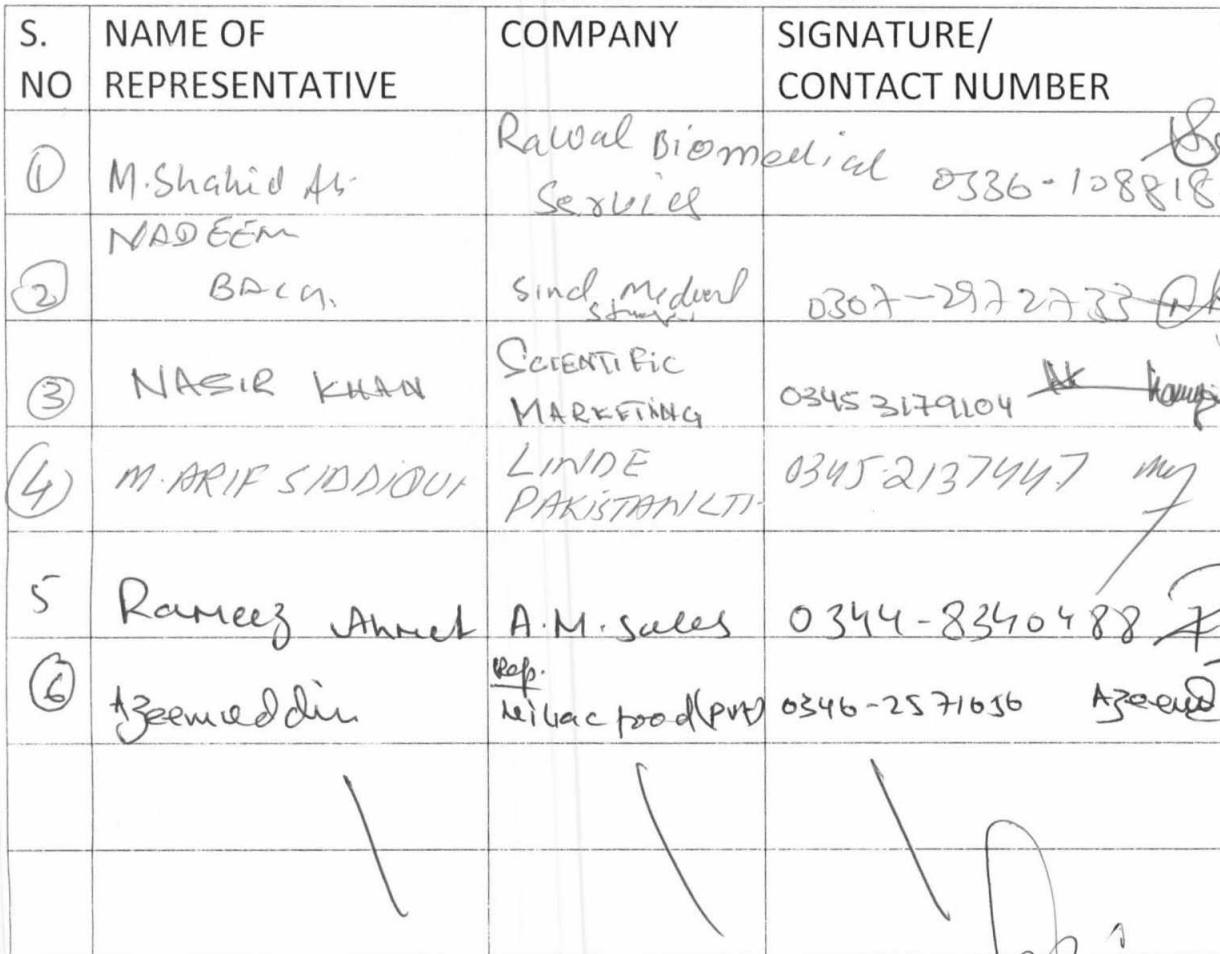 S. NO
NAME OF REPRESENTATIVE
COMPANY
SIGNATURE/ CONTACT NUMBER
1
M. Shahid
Rawal Biomedical
Service
0336-108818
2
NADEEM
Sind Medical
0307-2972733
3
NASIR KHAN
SCIENTIFIC
MARKETING
03453179104
4
M. ARIF SIDDIQUI
LINDE
PAKISTAN LTD
0345-2137447
5
Rameez Ahmet
A.M. Sales
0344-8340488
6
Azeemuddin
Rep.
food (pvt)
0346-2571056